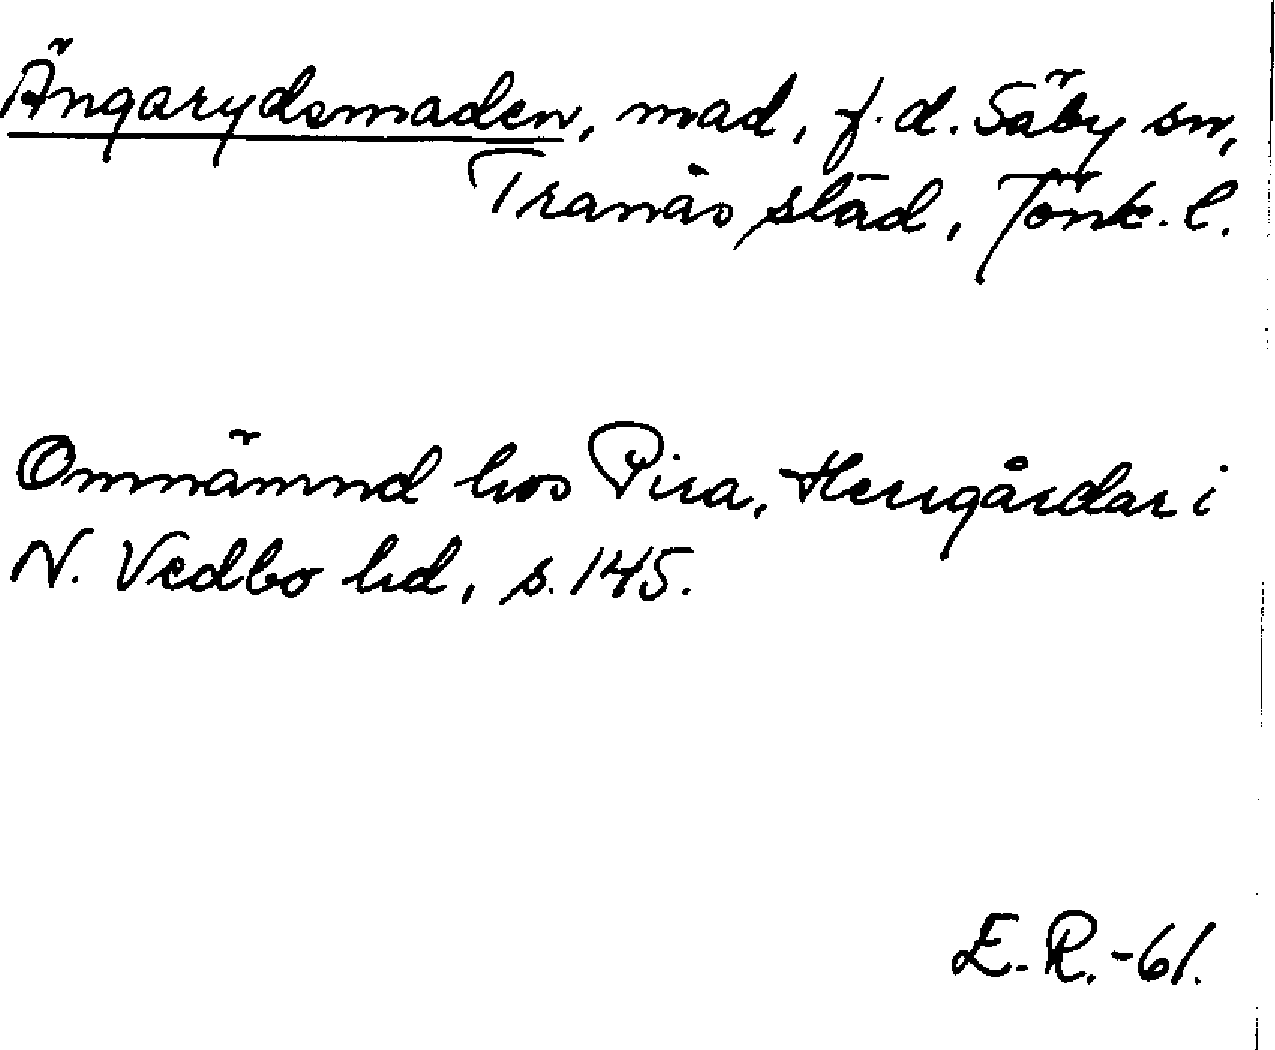 Ängarydsmaden, mad, f.d. Säby sn,
Tranås stad, Jönk. l.
Omnämnd hos Pira, Herrgårdar i
N. Vedbo hd, s. 145.
E.R.-61.